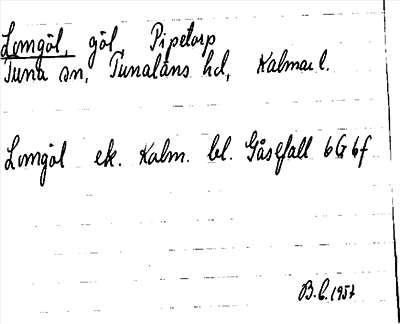 Lomgöl, göl, Pipetorp
Tuna sn, Tunaläns hd, Kalmar l.
Lomgöl ek. Kalm. bl. Gåsefall 6G 6f
B.C. 1957